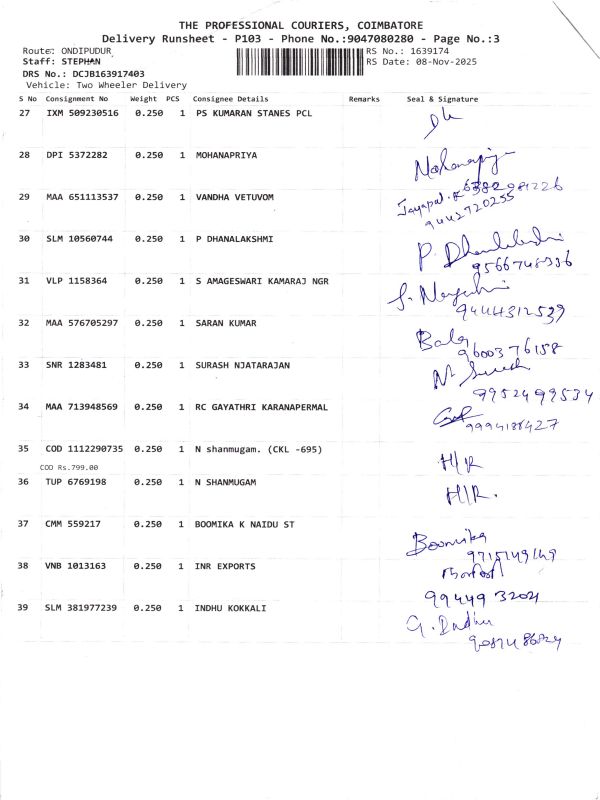 THE PROFESSIONAL COURIERS, COIMBATORE
Delivery Runsheet - P103 - Phone No.:9047080280 - Page No.:3
Route: ONDIPUDUR RS No.: 1639174
Staff: STEPHAN RS Date: 08-Nov-2025
DRS No.: DCJB163917403
Vehicle: Two Wheeler Delivery
S No Consignment No Weight PCS Consignee Details Remarks Seal & Signature
27 IXM 509230516 0.250 1 PS KUMARAN STANES PCL
28 DPI 5372282 0.250 1 MOHANAPRIYA Mohanapriya
6382981226
29 MAA 651113537 0.250 1 VANDHA VETUVOM Jayapal.K
9442720255
30 SLM 10560744 0.250 1 P DHANALAKSHMI P. Dhanalakshmi
9566748336
31 VLP 1158364 0.250 1 S AMAGESWARI KAMARAJ NGR
9444312539
32 MAA 576705297 0.250 1 SARAN KUMAR Bala
9600376158
33 SNR 1283481 0.250 1 SURASH NJATARAJAN N. Suresh
9952499534
34 MAA 713948569 0.250 1 RC GAYATHRI KARANAPERMAL
9994188427
35 COD 1112290735 0.250 1 N shanmugam. (CKL -695) H/R
COD Rs.799.00
36 TUP 6769198 0.250 1 N SHANMUGAM H/R.
37 CMM 559217 0.250 1 BOOMIKA K NAIDU ST Boomika
9715149149
38 VNB 1013163 0.250 1 INR EXPORTS
99449 32021
39 SLM 381977239 0.250 1 INDHU KOKKALI G. Indhu